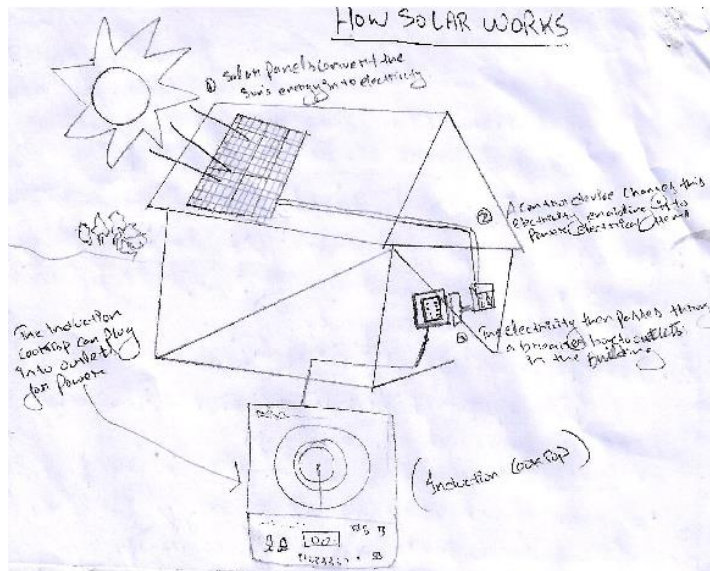 HOW SOLAR WORKS
① Solar Panels convert the
Sun's energy into electricity
② A Control device Changes this
electricity enabling it to
Power electrical
③ The electricity then passes through
a breaker box to outlets
in the building
The Induction
Cooktop can plug
into outlets
for Power
(Induction CookTop)